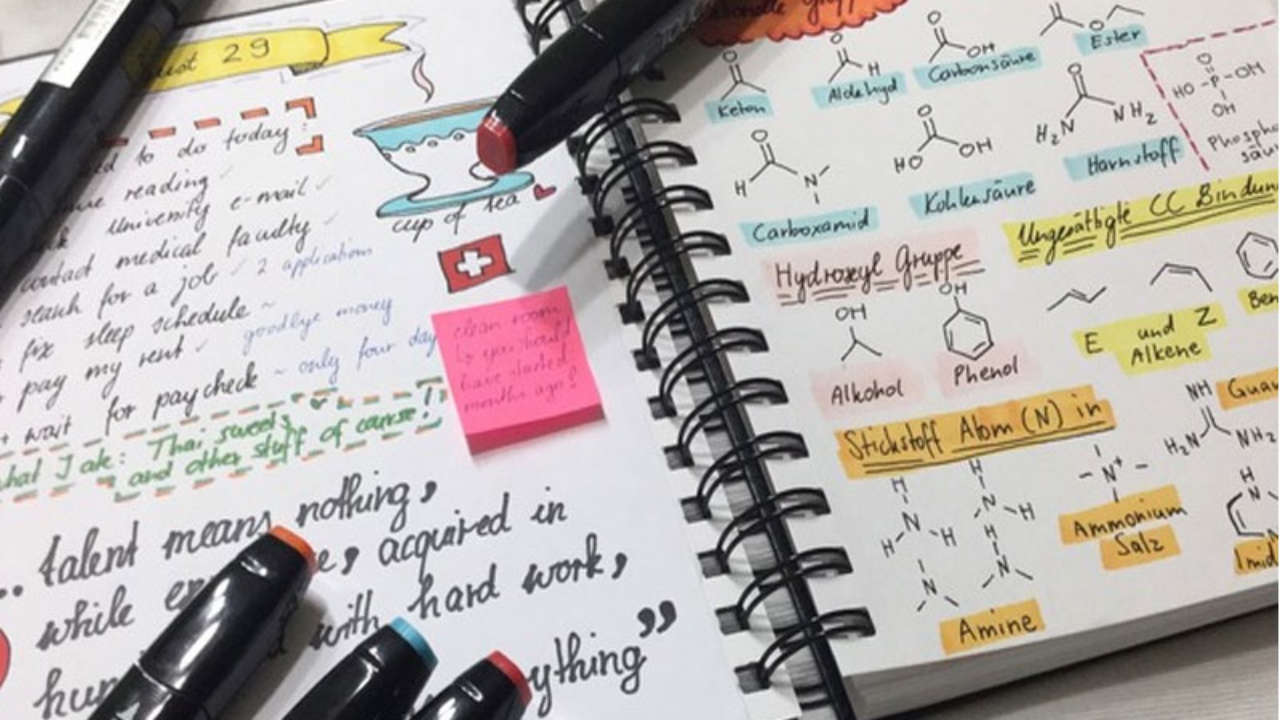 29
to do today:
reading ✓
University e-mail ✓
contact medical faculty ✓
search for a job ✓ 2 applications
fix sleep schedule ~
pay my rent ✓ goodbye money
wait for paycheck ~ only four day
Thai sweets
and other stuff of course!
cup of tea
clean room
↳ you should
have started
months ago!
... talent means nothing,
while acquired in
with hard work,
ything”
O
Keton
O
H
Aldehyd
O
OH
Carbonsäure
O
O
Ester
O
H
N
Carboxamid
O
HO
OH
Kohlensäure
O
H₂N
NH₂
Harnstoff
O
HO-P-OH
OH
Phospho
säu
Hydroxyl Gruppe
OH
Alkohol
OH
Phenol
Ungesättigte CC Bindun
E und Z
Alkene
Ben
Stickstoff Atom (N) in
H
H N H
H
N H
N
H
N
Amine
N⁺
Ammonium
Salz
NH
H₂N
NH₂
Guan
H
N
N
Imid